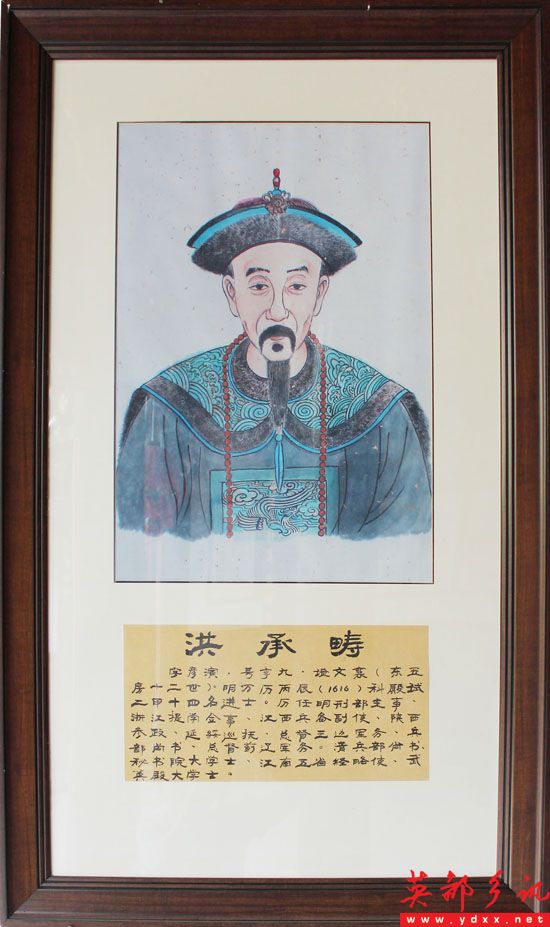 洪承畴
字彦演,号亨九,谥文襄(东
房)十四世。明万历丙辰(1616)科殿试
二甲十四名进士。历任刑部主事、
浙江提学佥事、江西兵备副使、陕西
参政、延绥巡抚、三边总督军务、兵
部尚书、蓟辽总督
秘书院大学士、江南五省经略、武
英殿大学士。
英都乡讯
www.ydxx.net